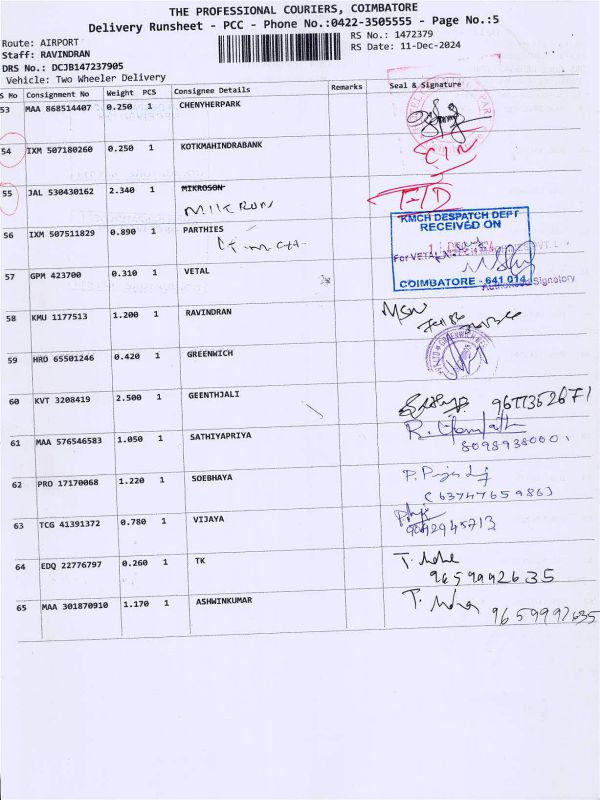 THE PROFESSIONAL COURIERS, COIMBATORE
Delivery Runsheet - PCC - Phone No.:0422-3505555 - Page No.:5
Route: AIRPORT
RS No.: 1472379
Staff: RAVINDRAN
RS Date: 11-Dec-2024
DRS No.: DCJB147237905
Vehicle: Two Wheeler Delivery
S No Consignment No Weight PCS Consignee Details Remarks Seal & Signature
53 MAA 868514407 0.250 1 CHENYHERPARK
54 IXM 507180260 0.250 1 KOTKMAHINDRABANK
55 JAL 530430162 2.340 1 MIKROSON
MIKRON
56 IXM 507511829 0.890 1 PARTHIES
KMCH DESPATCH DEPT
RECEIVED ON
For VETAL
COIMBATORE - 641 014
Authorised Signatory
57 GPM 423700 0.310 1 VETAL
58 KMU 1177513 1.200 1 RAVINDRAN
59 HRO 65501246 0.420 1 GREENWICH
60 KVT 3208419 2.500 1 GEENTHJALI
9677352671
61 MAA 576546583 1.050 1 SATHIYAPRIYA
8098938000
62 PRO 17170068 1.220 1 SOEBHAYA
(6374765986)
63 TCG 41391372 0.780 1 VIJAYA
9042945713
64 EDQ 22776797 0.260 1 TK
9659992635
65 MAA 301870910 1.170 1 ASHWINKUMAR
9659992635